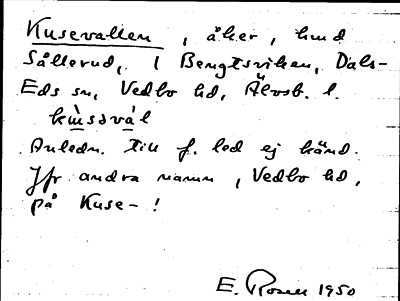 Kusevallen, åker, hmd
Sållerud, i Bengtsviken, Dals-
Eds sn, Vedbo hd, Älvsb. l.
Anledn. till f. led ej känd.
Jfr andra namn, Vedbo hd,
på Kuse-!
E. Rosell 1950